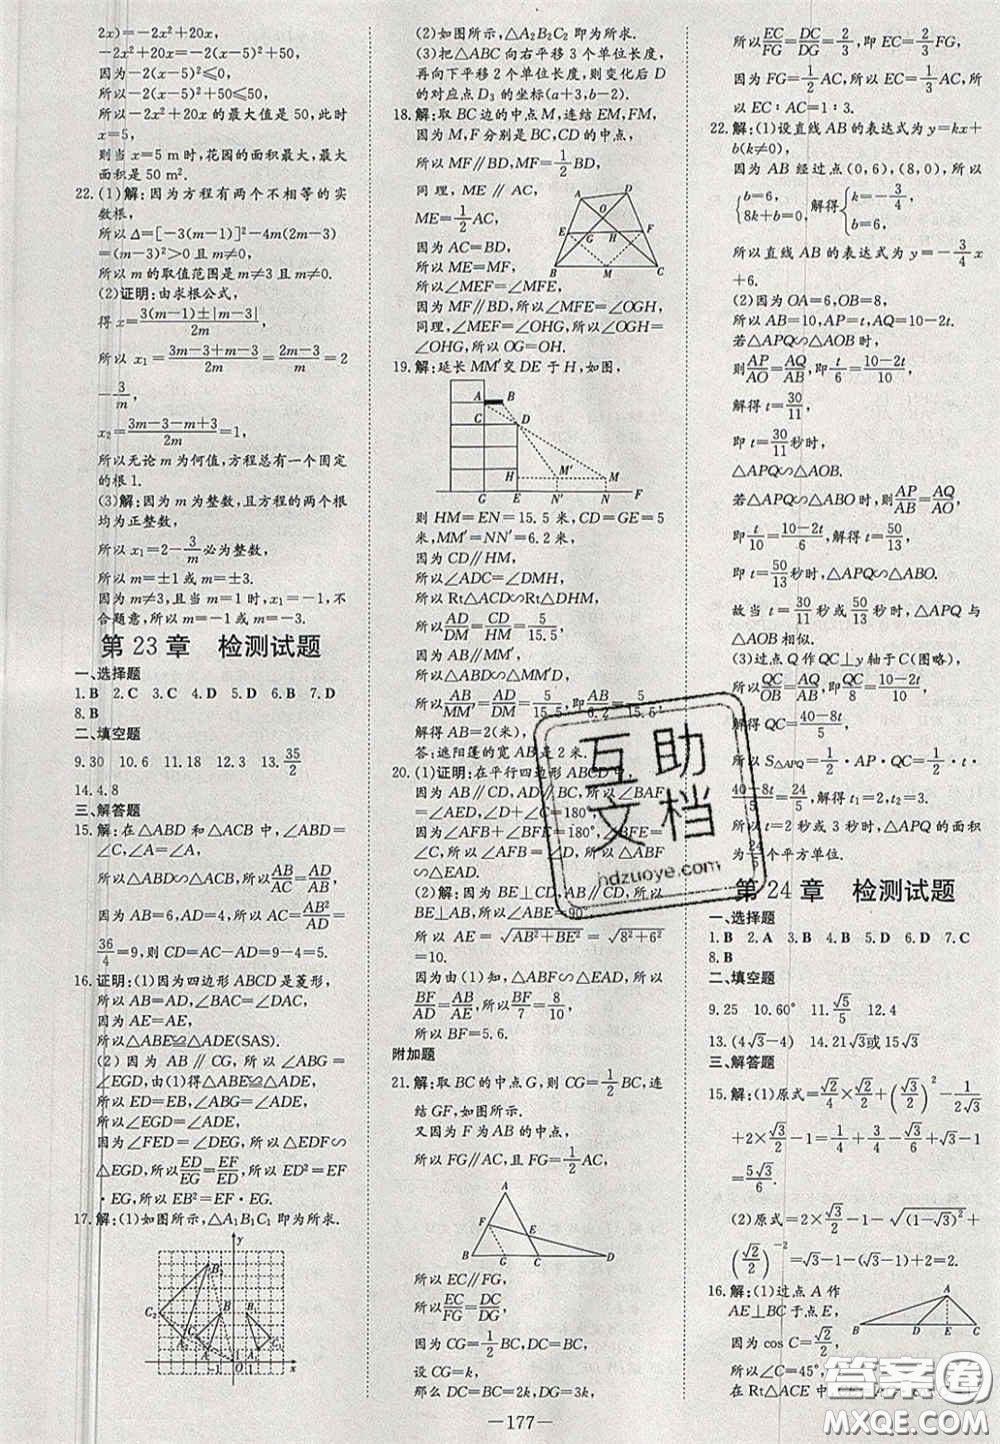 2x)=-2x²+20x,
-2x²+20x=-2(x-5)²+50,
因为-2(x-5)²≤0,
所以-2(x-5)²+50≤50,
所以-2x²+20x的最大值是50,此时
x=5,
则当x=5 m时,花园的面积最大,最大
面积是50 m².
22.(1)解:因为方程有两个不相等的实
数根,
所以Δ=[-3(m-1)]²-4m(2m-3)
=(m-3)²>0且m≠0,
所以m的取值范围是m≠3且m≠0.
(2)证明:由求根公式,
得x=\frac{3(m-1)±|m-3|}{2m},
所以x₁=\frac{3m-3+m-3}{2m}=\frac{2m-3}{m}=2
-\frac{3}{m},
x₂=\frac{3m-3-m+3}{2m}=1,
所以无论m为何值,方程总有一个固定
的根1.
(3)解:因为m为整数,且方程的两个根
均为正整数,
所以x₁=2-\frac{3}{m}必为整数,
所以m=±1或m=±3.
因为m≠3,且当m=1时,x₁=-1,不
合题意,所以m=-1或m=-3.
第23章 检测试题
一、选择题
1.B 2.C 3.C 4.D 5.D 6.B 7.D
8.B
二、填空题
9.30 10.6 11.18 12.3 13.\frac{35}{2}
14.4.8
三、解答题
15.解:在△ABD和△ACB中,∠ABD=
∠C,∠A=∠A,
所以△ABD∽△ACB,所以\frac{AB}{AC}=\frac{AD}{AB},
因为AB=6,AD=4,所以AC=\frac{AB²}{AD}=
\frac{36}{4}=9,则CD=AC-AD=9-4=5.
16.证明:(1)因为四边形ABCD是菱形,
所以AB=AD,∠BAC=∠DAC,
因为AE=AE,
所以△ABE≌△ADE(SAS).
(2)因为AB∥CG,所以∠ABG=
∠EGD,由(1)得△ABE≌△ADE,
所以ED=EB,∠ABG=∠ADE,
所以∠EGD=∠ADE,
因为∠FED=∠DEG,所以△EDF∽
△EGD,所以\frac{ED}{EG}=\frac{EF}{ED},所以ED²=EF
·EG,所以EB²=EF·EG.
17.解:(1)如图所示,△A₁B₁C₁即为所求.
(2)如图所示,△A₂B₂C₂即为所求.
(3)把△ABC向右平移3个单位长度,
再向下平移2个单位长度,则变化后D
的对应点D₃的坐标(a+3,b-2).
18.解:取BC边的中点M,连结EM,FM,
因为M,F分别是BC,CD的中点,
所以MF∥BD,MF=\frac{1}{2}BD,
同理,ME∥AC,
ME=\frac{1}{2}AC,
因为AC=BD,
所以ME=MF,
所以∠MEF=∠MFE,
因为MF∥BD,所以∠MFE=∠OGH,
同理,∠MEF=∠OHG,所以∠OGH=
∠OHG,所以OG=OH.
19.解:延长MM′交DE于H,如图,
则HM=EN=15.5米,CD=GE=5
米,MM′=NN′=6.2米,
因为CD∥HM,
所以∠ADC=∠DMH,
所以Rt△ACD∽Rt△DHM,
所以\frac{AD}{DM}=\frac{CD}{HM}=\frac{5}{15.5},
因为AB∥MM′,
所以△ABD∽△MM′D,
所以\frac{AB}{MM′}=\frac{AD}{DM}=\frac{5}{15.5},即\frac{AB}{6.2}=\frac{5}{15.5},
解得AB=2(米),
答:遮阳篷的宽AB是2米.
20.(1)证明:在平行四边形ABCD中,
所以AB∥CD,所以∠BAF
=∠AED,∠D+∠C=180°,
因为∠AFB+∠BFE=180°,∠BFE
=∠C,所以∠AFB=∠D,所以△ABF
∽△EAD.
(2)解:因为BE⊥CD,AB∥CD,所以
BE⊥AB,所以∠ABE=90°,
所以AE=\sqrt{AB²+BE²}=\sqrt{8²+6²}
=10.
因为由(1)知,△ABF∽△EAD,所以
\frac{BF}{AD}=\frac{AB}{AE},所以\frac{BF}{7}=\frac{8}{10},
所以BF=5.6.
附加题
21.解:取BC的中点G,则CG=\frac{1}{2}BC,连
结GF,如图所示.
又因为F为AB的中点,
所以FG∥AC,且FG=\frac{1}{2}AC,
所以EC∥FG,
所以\frac{EC}{FG}=\frac{DC}{DG},
因为CG=\frac{1}{2}BC,DC=BC,
设CG=k,
那么DC=BC=2k,DG=3k,
所以\frac{EC}{FG}=\frac{DC}{DG}=\frac{2}{3},即EC=\frac{2}{3}FG,
因为FG=\frac{1}{2}AC,所以EC=\frac{1}{3}AC,所
以EC∶AC=1∶3.
22.解:(1)设直线AB的表达式为y=kx+
b(k≠0),
因为AB经过点(0,6),(8,0),所以
{b=6, 8k+b=0, 解得{k=-\frac{3}{4}, b=6.
所以直线AB的表达式为y=-\frac{3}{4}x
+6.
(2)因为OA=6,OB=8,
所以AB=10,AP=t,AQ=10-2t.
若△APQ∽△AOB时,
则\frac{AP}{AO}=\frac{AQ}{AB},即\frac{t}{6}=\frac{10-2t}{10},
解得t=\frac{30}{11},
即t=\frac{30}{11}秒时,
△APQ∽△AOB.
若△APQ∽△ABO时,则\frac{AP}{AB}=\frac{AQ}{AO},
即\frac{t}{10}=\frac{10-2t}{6},解得t=\frac{50}{13},
即t=\frac{50}{13}秒时,△APQ∽△ABO.
故当t=\frac{30}{11}秒或\frac{50}{13}秒时,△APQ与
△AOB相似.
(3)过点Q作QC⊥y轴于C(图略),
所以\frac{QC}{OB}=\frac{AQ}{AB},即\frac{QC}{8}=\frac{10-2t}{10},
解得QC=\frac{40-8t}{5},
所以S△APQ=\frac{1}{2}·AP·QC=\frac{1}{2}·t·
\frac{40-8t}{5}=\frac{24}{5},解得t=2或t=3,
所以t=2秒或3秒时,△APQ的面积
为\frac{24}{5}个平方单位.
第24章 检测试题
一、选择题
1.B 2.A 3.B 4.B 5.D 6.D 7.C
8.B
二、填空题
9.25 10.60° 11.\frac{√5}{5} 12.4
13.(4√3-4) 14.21√3或15√3
三、解答题
15.解:(1)原式=\frac{√2}{4}×\frac{√2}{2}+(\frac{√3}{2})²-\frac{1}{2√3}
+2×\frac{√3}{2}=\frac{1}{4}+\frac{3}{4}-\frac{√3}{6}+√3=1+
\frac{5√3}{6}.
(2)原式=2×\frac{√3}{2}-\sqrt{(1-√3)²}+
(\frac{√2}{2})⁻²=√3-√3+1+2=3.
16.解:(1)过点A作
AE⊥BC于点E,
因为cos C=\frac{√2}{2},
所以∠C=45°,
在Rt△ACE中,
—177—
互助
文档
hdzuoye.com
答案圈
MXQE.COM